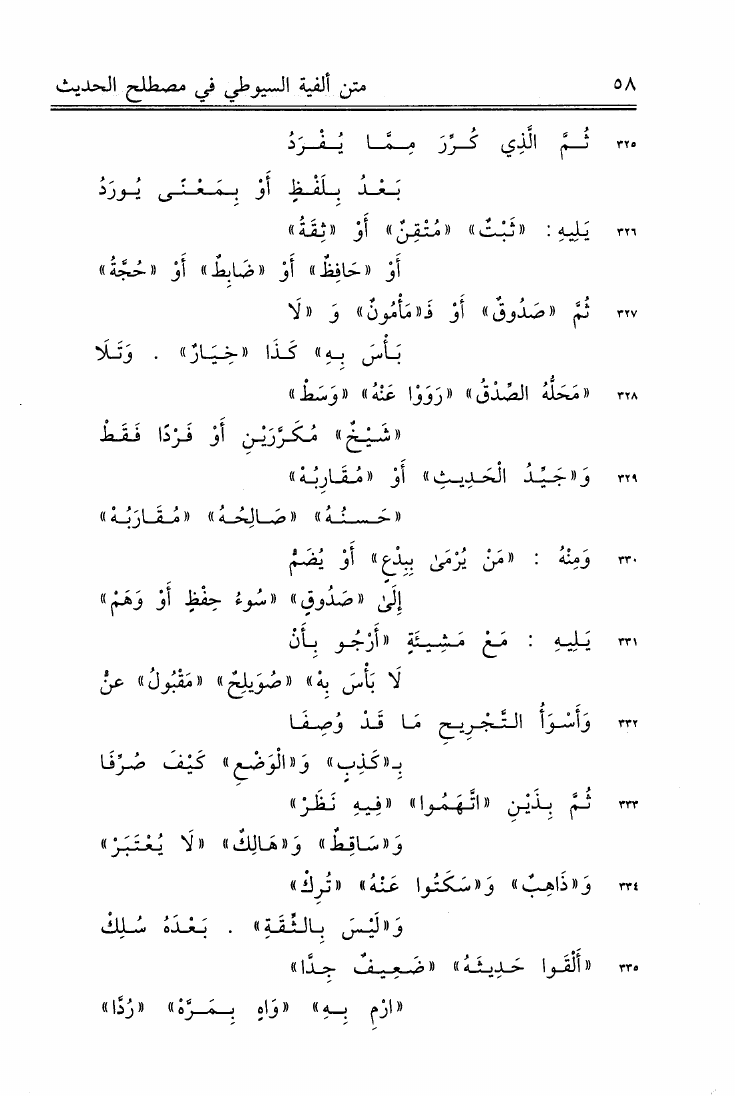 ٥٨ متن ألفية السيوطي في مصطلح الحديث
٣٢٥ ثُمَّ الَّذِي كُرِّرَ مِمَّا يُفْرَدُ
بَعْدُ بِلَفْظٍ أَوْ بِمَعْنًى يُورَدُ
٣٢٦ يَلِيهِ : «ثَبْتٌ» «مُتْقِنٌ» أَوْ «ثِقَةٌ»
أَوْ «حَافِظٌ» أَوْ «ضَابِطٌ» أَوْ «حُجَّةٌ»
٣٢٧ ثُمَّ «صَدُوقٌ» أَوْ فَـ«مَأْمُونٌ» وَ «لَا
بَأْسَ بِهِ» كَذَا «خِيَارٌ» . وَتَلَا
٣٢٨ «مَحَلُّهُ الصِّدْقُ» «رَوَوْا عَنْهُ» «وَسَطْ»
«شَيْخٌ» مُكَرَّرَيْنِ أَوْ فَرْدًا فَقَطْ
٣٢٩ وَ«جَيِّدُ الْحَدِيثِ» أَوْ «مُقَارِبُهْ»
«حَسَنُهُ» «صَالِحُهُ» «مُقَارَبُهْ»
٣٣٠ وَمِنْهُ : «مَنْ يُرْمَىٰ بِبِدْعٍ» أَوْ يُضَمُّ
إِلَىٰ «صَدُوقٍ» «سُوءُ حِفْظٍ أَوْ وَهَمْ»
٣٣١ يَلِيهِ : مَعْ مَشِيئَةٍ «أَرْجُو بِأَنْ
لَا بَأْسَ بِهْ» «صُوَيلِحٌ» «مَقْبُولُ» عَنْ
٣٣٢ وَأَسْوَأُ التَّجْرِيحِ مَا قَدْ وُصِفَا
بِـ«كَذِبٍ» وَ«الْوَضْعِ» كَيْفَ صُرِّفَا
٣٣٣ ثُمَّ بِذَيْنِ «اتَّهَمُوا» «فِيهِ نَظَرْ»
وَ«سَاقِطٌ» وَ«هَالِكٌ» «لَا يُعْتَبَرْ»
٣٣٤ وَ«ذَاهِبٌ» وَ«سَكَتُوا عَنْهُ» «تُرِكْ»
وَ«لَيْسَ بِالثِّقَةِ» . بَعْدَهُ سُلِكْ
٣٣٥ «أَلْقَوا حَدِيثَهُ» «ضَعِيفٌ جِدًّا»
«ارْمِ بِهِ» «وَاهٍ بِمَرَّهْ» «رُدَّا»